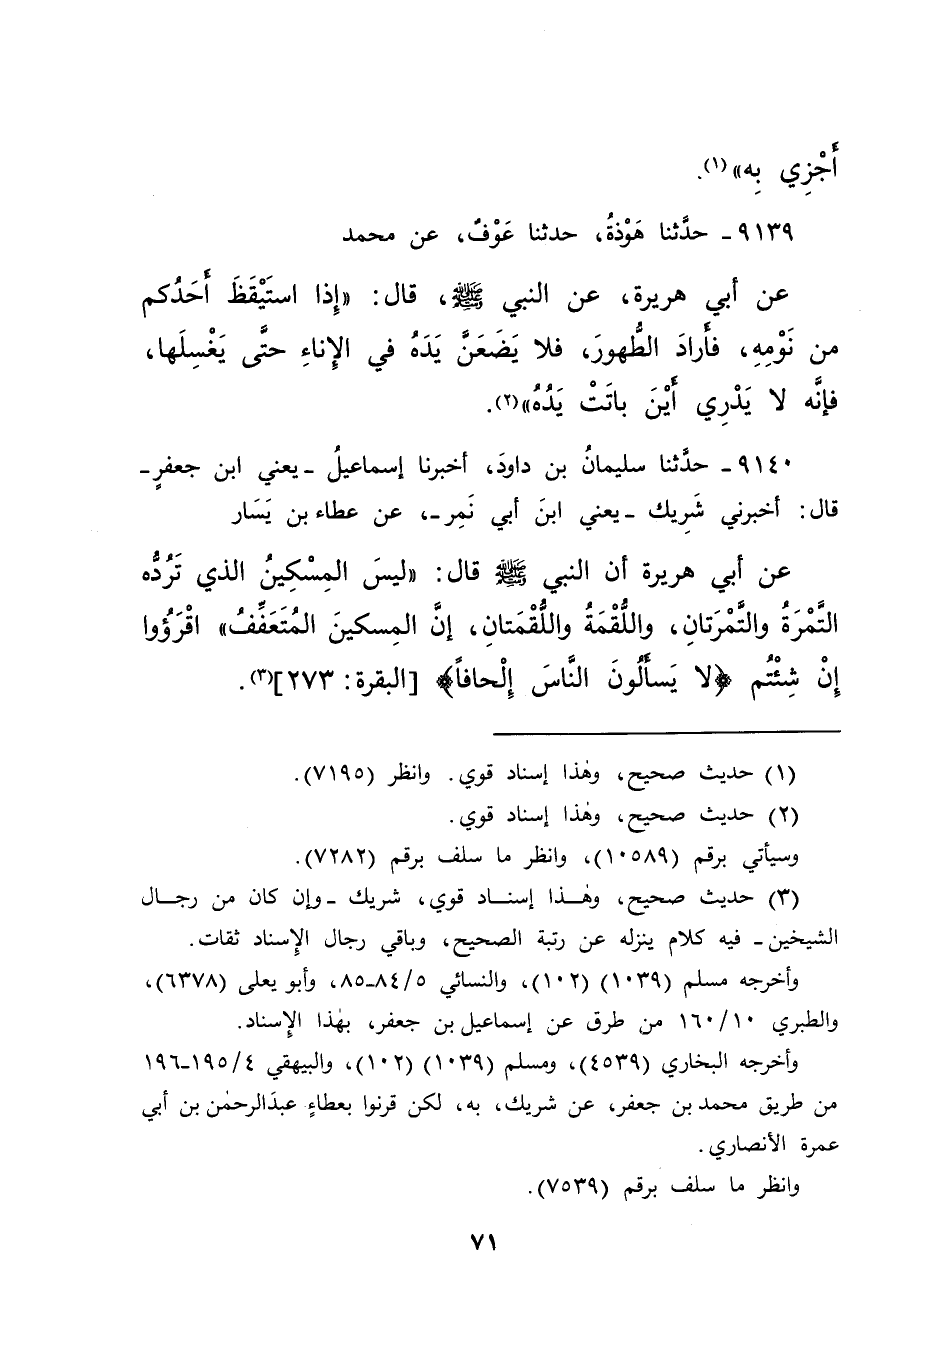 أَجْزِي بِه»(١).
٩١٣٩ـ حدَّثنا هَوْذةُ، حدثنا عَوْفٌ، عن محمد
عن أبي هريرة، عن النبي ﷺ، قال: «إِذا استَيْقَظَ أَحَدُكم
من نَوْمِهِ، فأَرادَ الطُّهورَ، فلا يَضَعَنَّ يَدَهُ في الإِناءِ حتَّى يَغْسِلَها،
فإِنَّه لا يَدْرِي أَيْنَ باتَتْ يَدُهُ»(٢).
٩١٤٠ـ حدَّثنا سليمانُ بن داودَ، أخبرنا إسماعيلُ ـ يعني ابن جعفرٍ ـ
قال: أخبرني شَرِيك ـ يعني ابنَ أبي نَمِر ـ، عن عطاء بن يَسَار
عن أبي هريرة أن النبي ﷺ قال: «ليسَ المِسْكِينُ الذي تَرُدُّه
التَّمْرَةُ والتَّمْرَتانِ، واللُّقْمَةُ واللُّقْمَتانِ، إِنَّ المِسكينَ المُتَعَفِّفُ» اقْرَؤُوا
إِنْ شِئْتُم ﴿لا يَسأَلُونَ النَّاسَ إِلْحافاً﴾ [البقرة: ٢٧٣](٣).
(١) حديث صحيح، وهٰذا إسناد قوي. وانظر (٧١٩٥).
(٢) حديث صحيح، وهٰذا إسناد قوي.
وسيأتي برقم (١٠٥٨٩)، وانظر ما سلف برقم (٧٢٨٢).
(٣) حديث صحيح، وهٰذا إسناد قوي، شريك ـ وإن كان من رجال
الشيخين ـ فيه كلام ينزله عن رتبة الصحيح، وباقي رجال الإسناد ثقات.
وأخرجه مسلم (١٠٣٩) (١٠٢)، والنسائي ٥/٨٤ـ٨٥، وأبو يعلى (٦٣٧٨)،
والطبري ١٠/١٦٠ من طرق عن إسماعيل بن جعفر، بهٰذا الإسناد.
وأخرجه البخاري (٤٥٣٩)، ومسلم (١٠٣٩) (١٠٢)، والبيهقي ٤/١٩٥ـ١٩٦
من طريق محمد بن جعفر، عن شريك، به، لكن قرنوا بعطاءٍ عبدَالرحمٰن بن أبي
عمرة الأنصاري.
وانظر ما سلف برقم (٧٥٣٩).
٧١